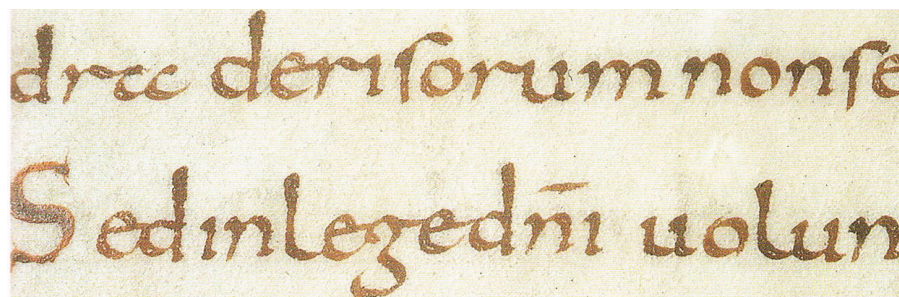 dra derisorum nonse
Sed in lege dn̄i uolun